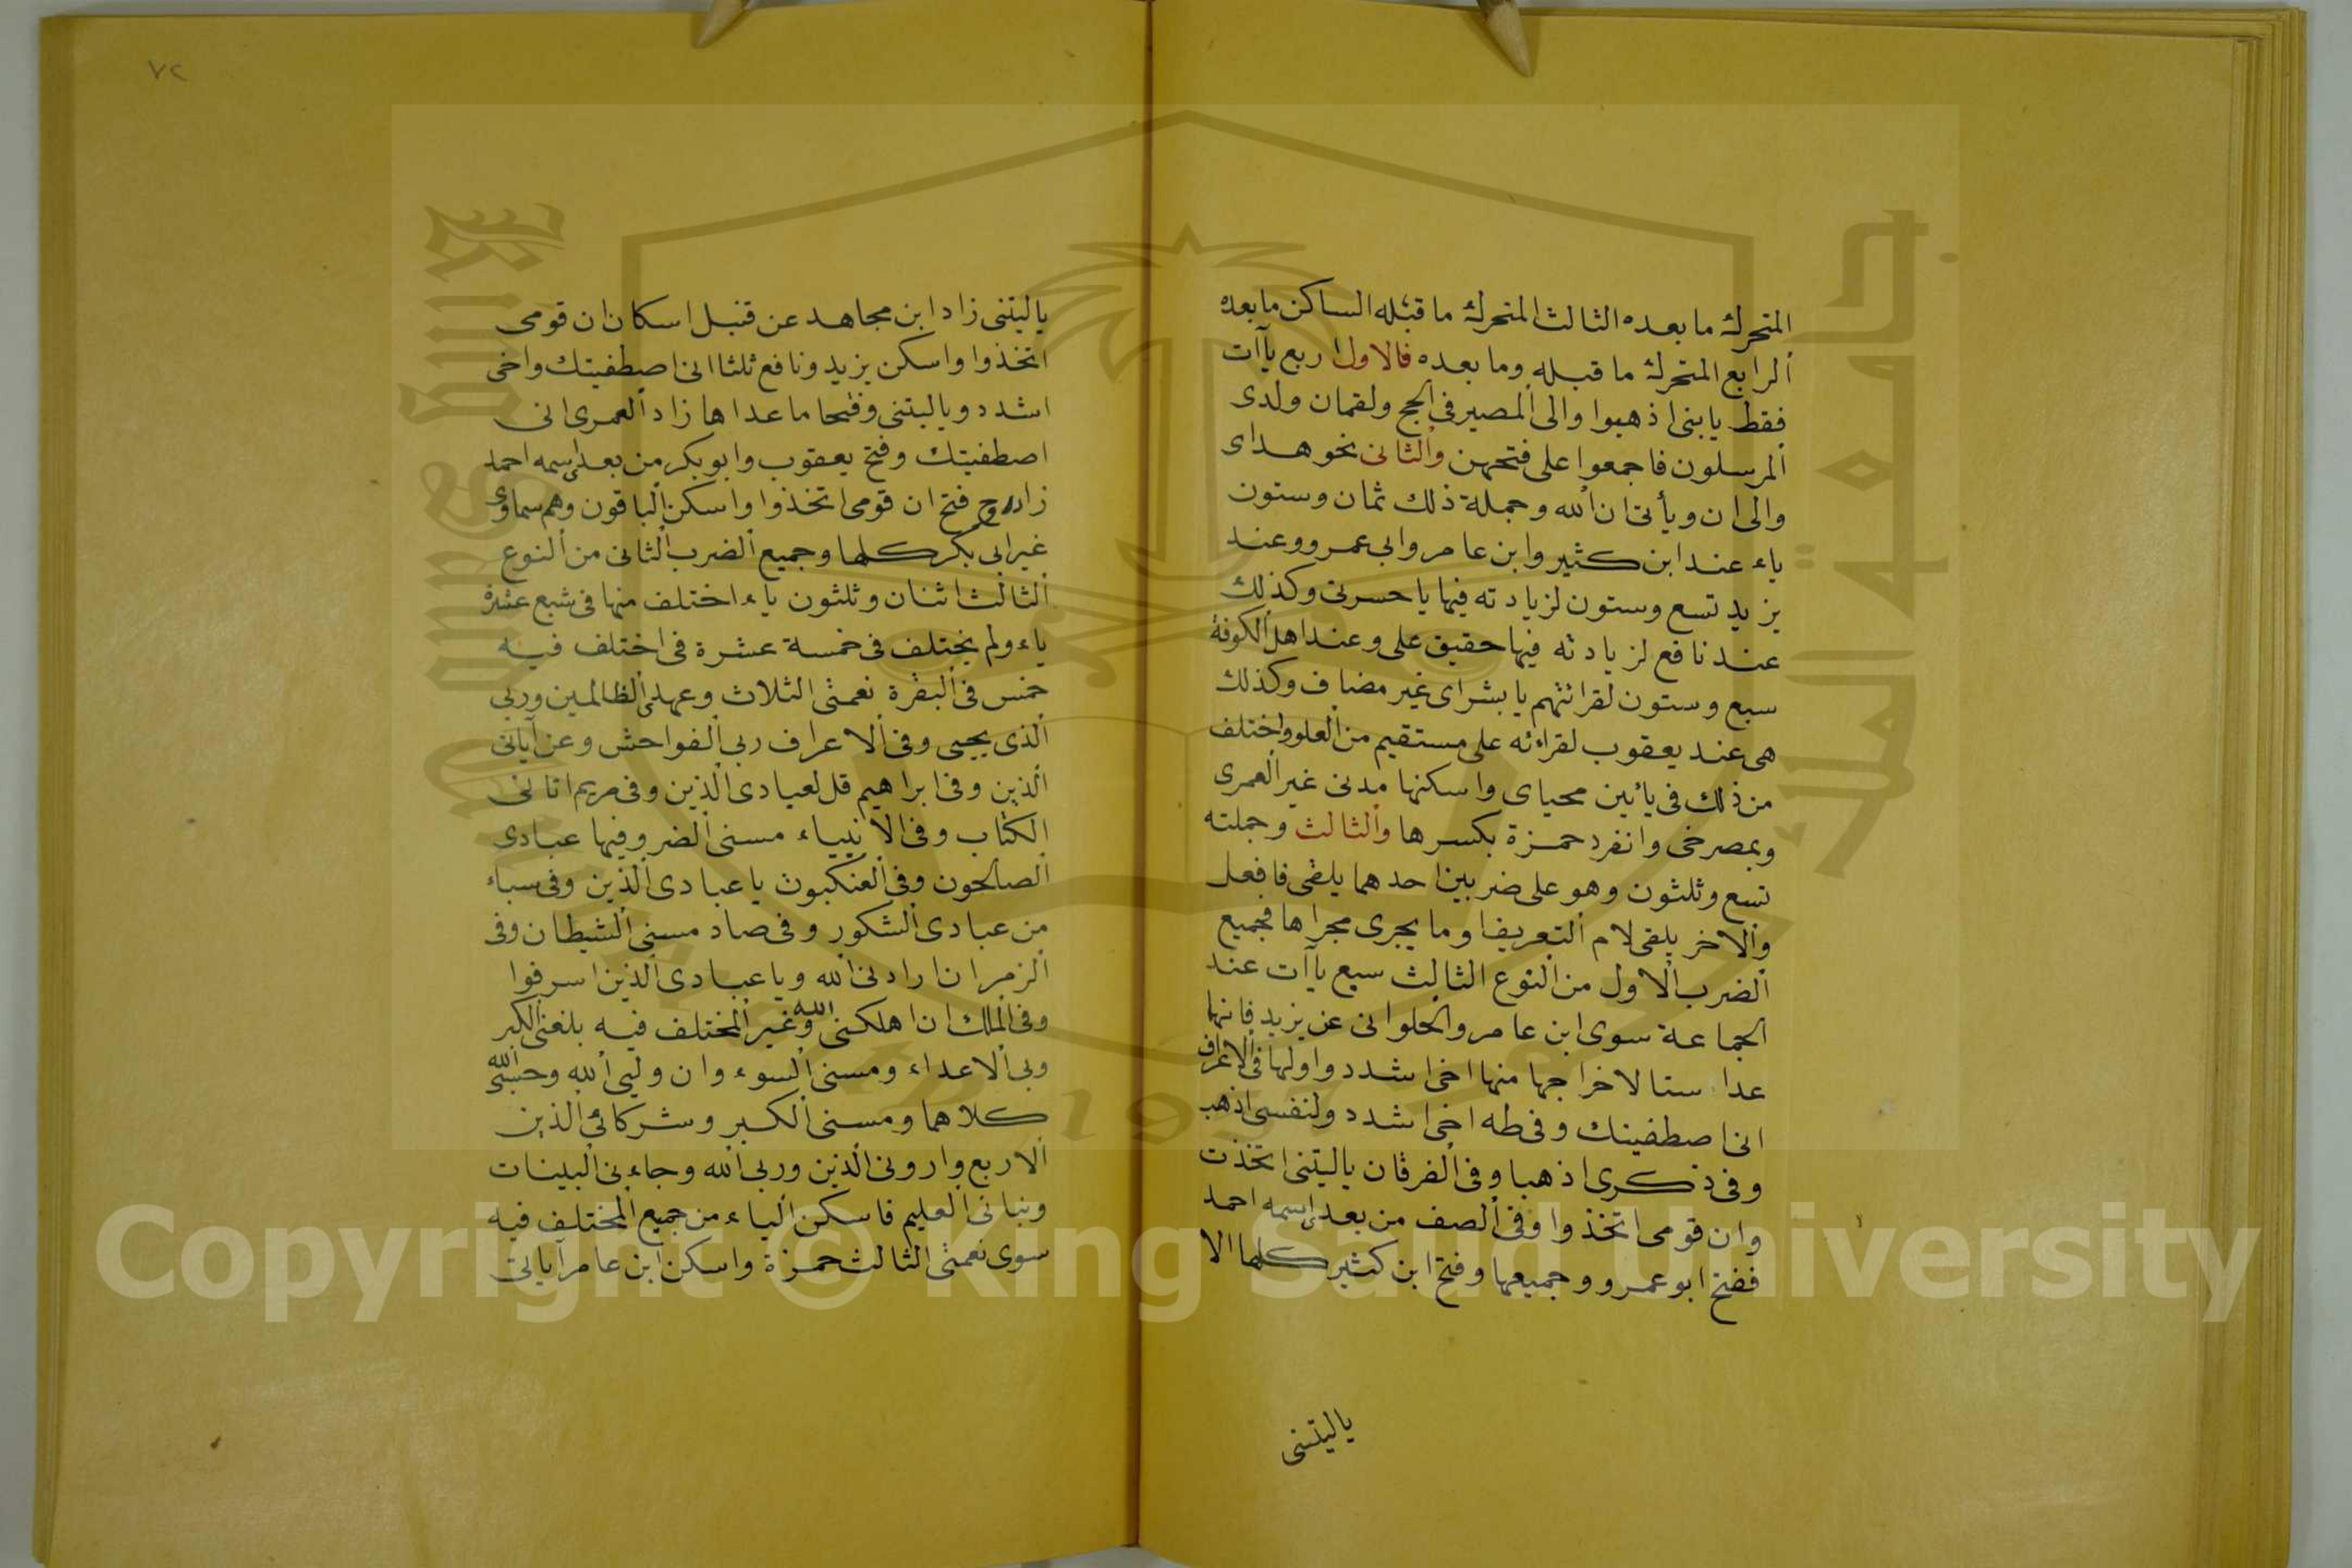 المتحرك ما بعده الثالث المتحرك ما قبله الساكن ما بعده
الرابع المتحرك ما قبله وما بعده فالاول اربع يآآت
فقط يابنى اذهبوا والى المصير فى الحج ولقمان ولدى
المرسلون فاجمعوا على فتحهن والثانى نحو هداى
والى ان ويأتى ان الله وجملة ذلك ثمان وستون
ياء عند ابن كثير وابن عامر وابى عمرو وعند
يزيد تسع وستون لزيادته فيها ياحسرتى وكذلك
عند نافع لزيادته فيها حقيق على وعند اهل الكوفة
سبع وستون لقرائتهم يا بشراى غير مضاف وكذلك
هى عند يعقوب لقراءته على مستقيم من العلو واختلف
من ذلك فى يائين محياى واسكنها مدنى غير العمرى
وبمصرخى وانفرد حمزة بكسرها والثالث وجملته
تسع وثلثون وهو على ضربين احدهما يلقى فا فعل
والاخر يلقى لام التعريف وما يجرى مجراها فجميع
الضرب الاول من النوع الثالث سبع يآآت عند
الجماعة سوى ابن عامر والحلوانى عن يزيد فانها
عدا ستا لاخراجها منها اخى اشدد واولها فى الاعراف
انى اصطفيتك وفى طه اخى اشدد ولنفسى اذهب
وفى ذكرى اذهبا وفى الفرقان ياليتنى اتخذت
وان قومى اتخذوا وفى الصف من بعدى اسمه احمد
ففتح ابو عمرو وجميعها وفتح ابن كثير كلها الا
ياليتنى
٧٢
ياليتنى زاد ابن مجاهد عن قنبل اسكان ان قومى
اتخذوا واسكن يزيد ونافع ثلثا انى اصطفيتك واخى
اشدد وياليتنى وفتحا ما عداها زاد العمرى انى
اصطفيتك وفتح يعقوب وابو بكر من بعدى اسمه احمد
زاد روح فتح ان قومى اتخذوا واسكن الباقون وهم سماوى
غير ابى بكر كلها وجميع الضرب الثانى من النوع
الثالث اثنان وثلثون ياء اختلف منها فى سبع عشرة
ياء ولم يختلف فى خمسة عشرة فى اختلف فيه
خمس فى البقرة نعمتى الثلاث وعهدى الظالمين وربى
الذى يحيى وفى الاعراف ربى الفواحش وعن آياتى
الذين وفى ابراهيم قل لعبادى الذين وفى مريم اتانى
الكتاب وفى الانبياء مسنى الضر وفيها عبادى
الصالحون وفى العنكبوت يا عبادى الذين وفى سباء
من عبادى الشكور وفى صاد مسنى الشيطان وفى
الزمر ان ارادنى الله ويا عبادى الذين اسرفوا
وفى الملك ان اهلكنى الله وغير المختلف فيه بلغنى الكبر
وبى الاعداء ومسنى السوء وان وليى الله وحسبى الله
كلاهما ومسنى الكبر وشركائى الذين
الاربع وارونى الذين وربى الله وجاءنى البينات
ونبانى العليم فاسكن الياء من جميع المختلف فيه
سوى نعمتى الثالث حمزة واسكن ابن عامر آياتى
Copyright © King Saud University